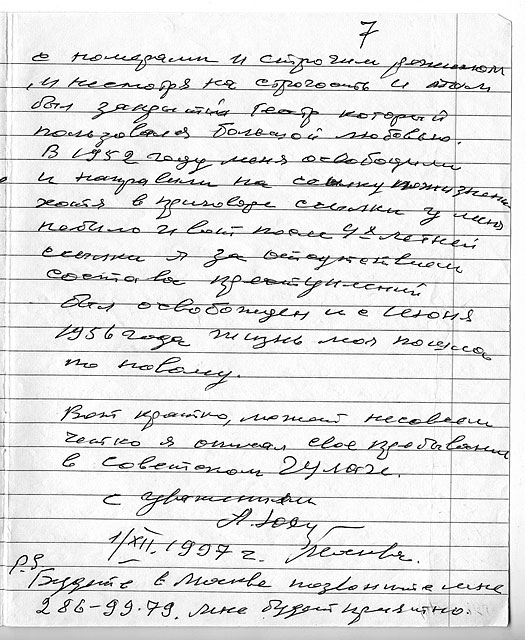 7
с номерами и строгим режимом
, и несмотря на строгость и этом
был закрытый театр который
пользовался большой любовью.
В 1952 году меня освободили
и направили на ссылку пожизнено
хотя в приговоре ссылки у меня
небыло и вот после 4х летней
ссылки я за отсутствием
состава преступлений
был освобожден и с июня
1956 года жизнь моя пошла
по новому.
Вот кратко, может несовсем
четко я описал свое пребывание
в советском Гулаге.
с уважением
1/XII.1997 г. Москва.
P.S
Будете в Москве позвоните мне
286-99-79. мне будет приятно.